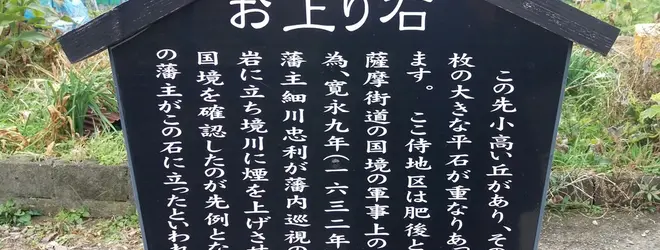 お上り石
この先小高い丘があり、そ
枚の大きな平石が重なりあっ
ます。 ここ侍地区は肥後と
薩摩街道の国境の軍事上の
為、寛永九年(一六三二年
藩主細川忠利が藩内巡視の
岩に立ち境川に煙を上げさせ
国境を確認したのが先例とな
の藩主がこの石に立ったといわれ